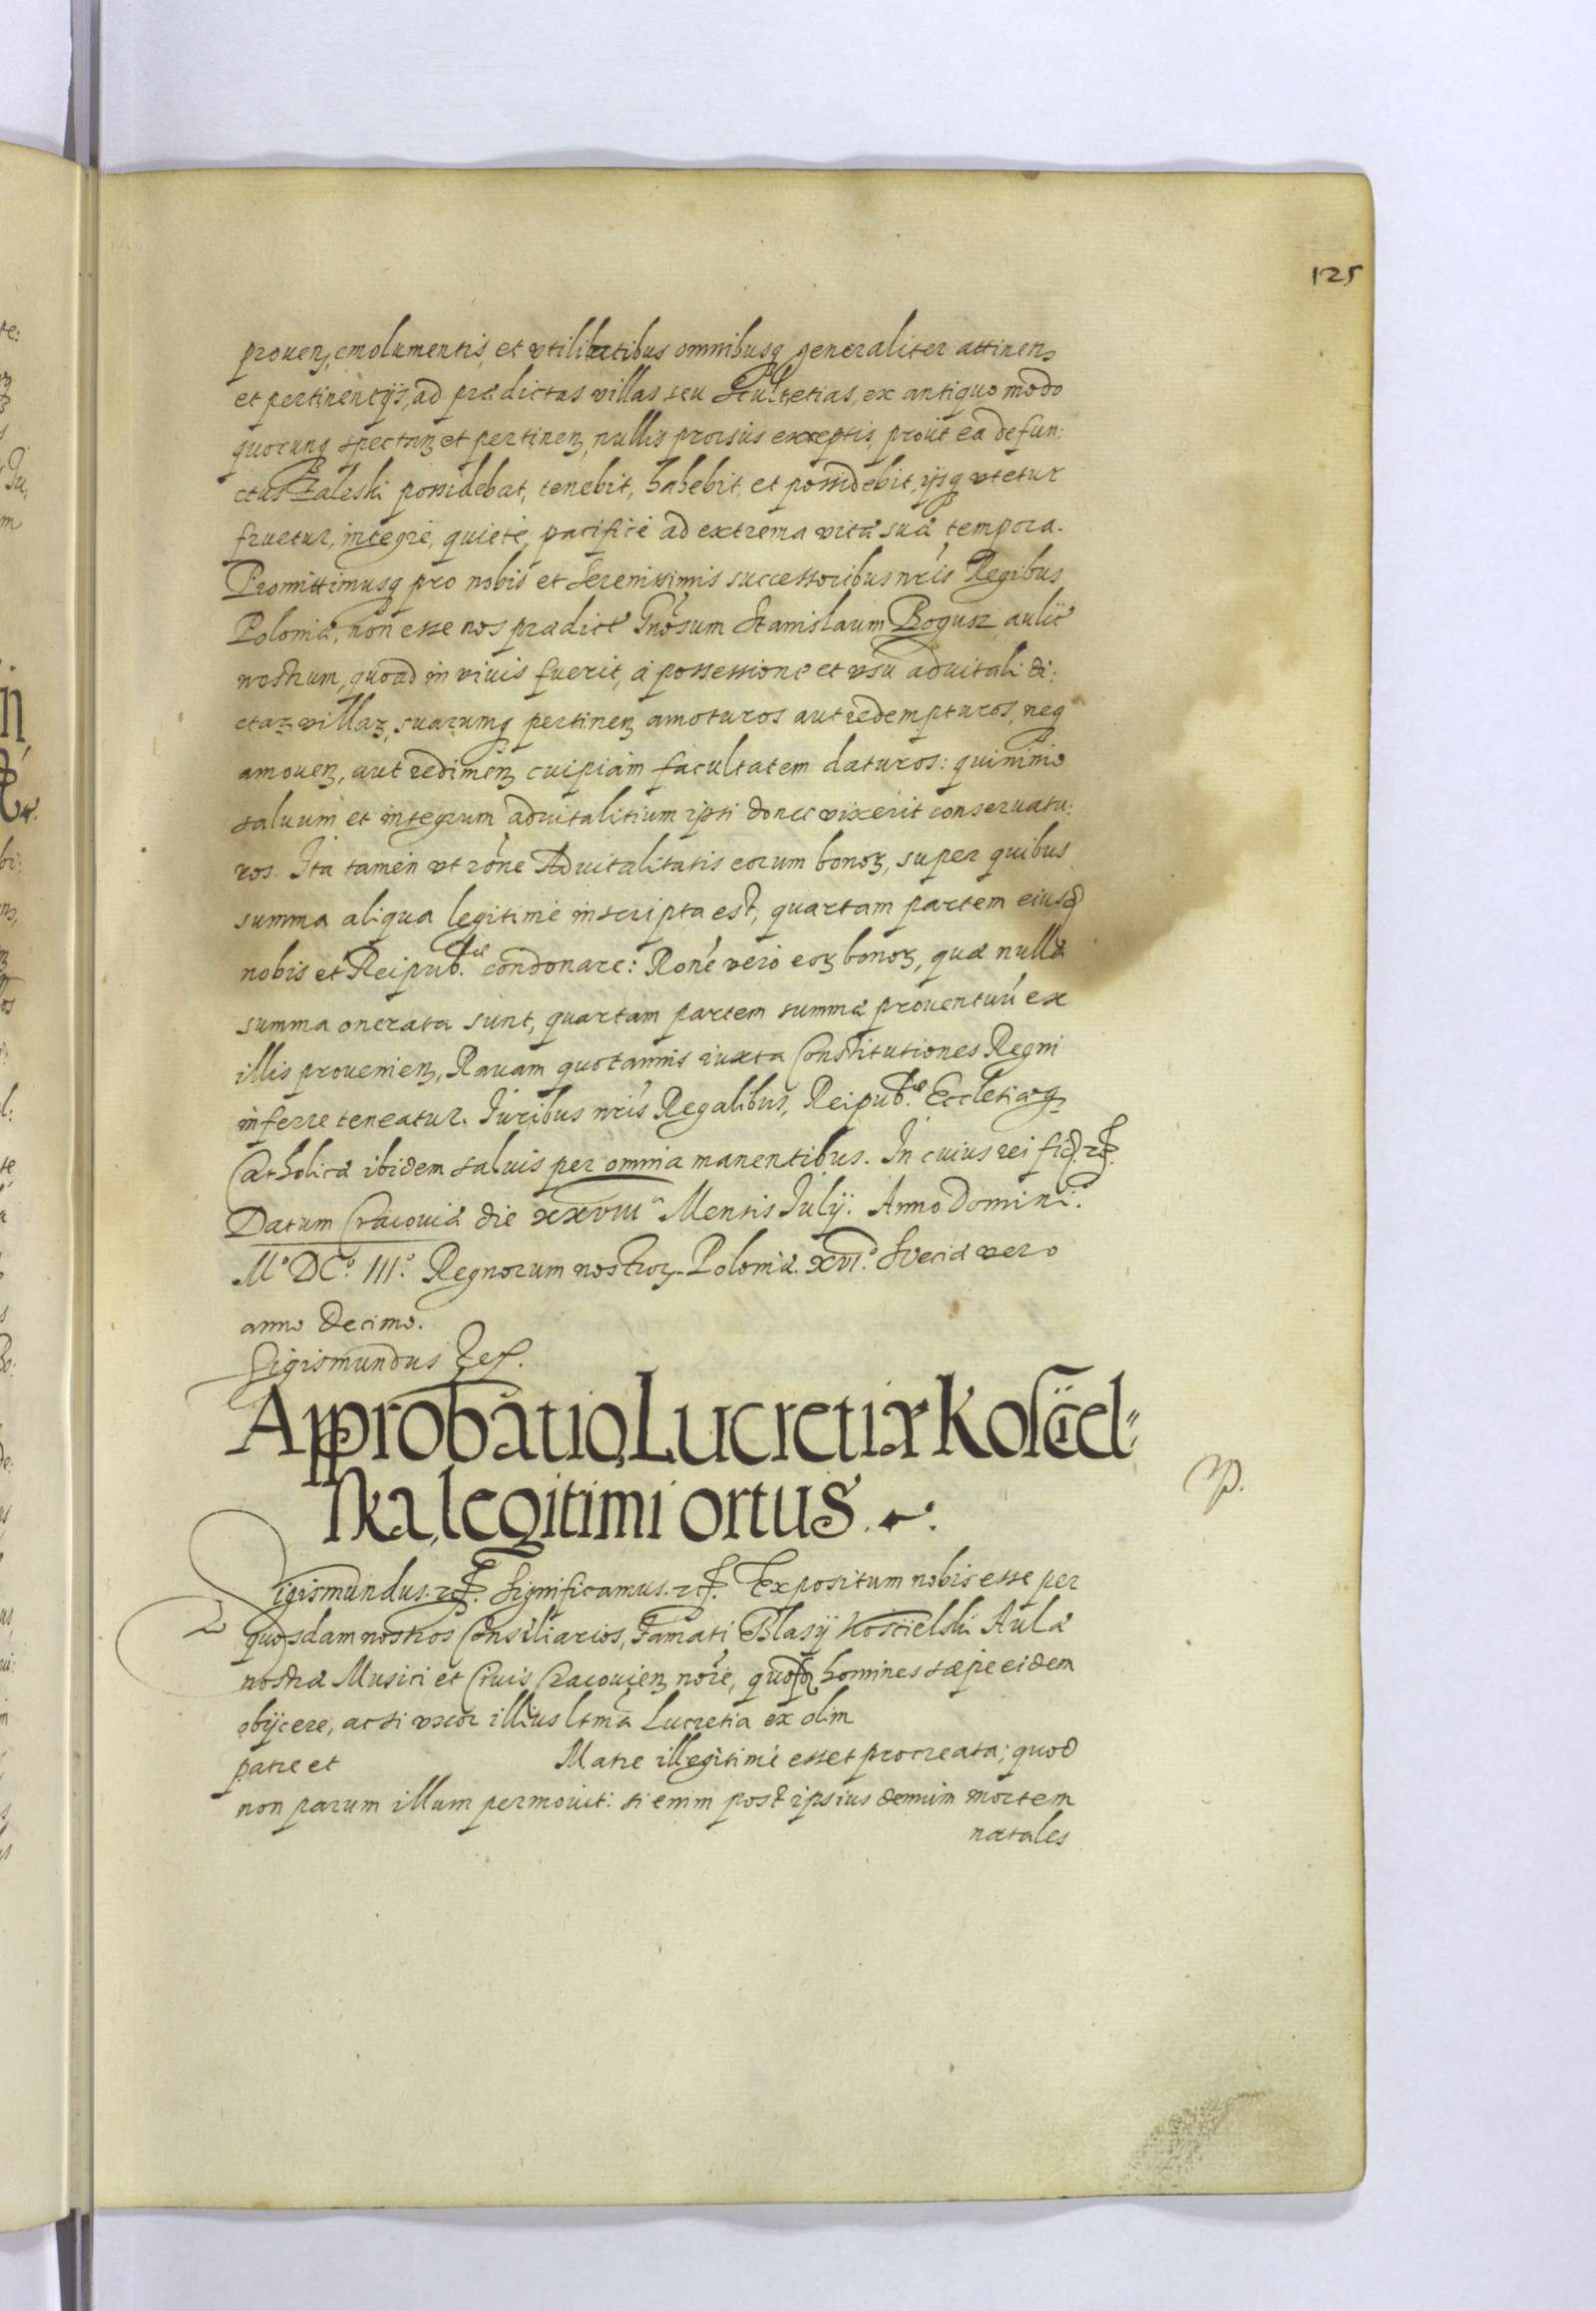 125
prouen, emolumentis, et vtilitatibus omnibusq generaliter attinen,
et pertinentijs, ad prædictas villas seu Scultetias, ex antiquo modo
quocunq spectan et pertinen, nullis prorsus exceptis, prout ea defun:
ctus Zaleski possidebat, tenebit, habebit, et possidebit, ijsq vtetur
fruetur, integrè, quietè, pacificè ad extrema vitæ suæ tempora.
Promittimusq pro nobis et Serenissimis successoribus nris Regibus
Poloniæ, non esse nos prædict Gnosum Stanislaum Bogusz aulic
nostrum, quoad in viuis fuerit, à possessione et vsu aduitali di:
ctaꝝ villaꝝ, suarumq pertinen amoturos aut redempturos, neq
amouen, aut redimen cuipiam facultatem daturos: quinimo
saluum et integrum aduitalitium ipsi donec vixerit conseruatu:
ros. Ita tamen vt rone Aduitalitatis eorum bonoꝝ, super quibus
summa aliqua legitimè inscripta est, quartam partem eiusd
nobis et Reipub.cæ condonare: Rone vero eoꝝ bonoꝝ, quæ nulla
summa onerata sunt, quartam partem summæ prouentuu ex
illis prouenien, Rauam quotannis iuxta Constitutiones Regni
inferre teneatur. Iuribus nris Regalibus, Reipub.cæ Ecclesiæq
Catholicæ ibidem saluis per omnia manentibus. In cuius rei fid. etc.
Datum Cracouiæ die xxviiia Mensis Iulij. Anno Domini.
Mo DCo. IIIo. Regnorum nostroꝝ Poloniæ. xvio. Sueciæ vero
anno decimo.
Sigismundus Rex.
Approbatio, Lucretiæ Kosciel=
ska, legitimi ortus.
p.
Sigismundus. etc. Significamus. etc. Expositum nobis esse per
quosdam nostros Consiliarios, Famati Blasij Koscielski Aulæ
nostræ Musici et Ciuis Cracouien noie, quosd homines sæpe eidem
obijcere, ac si vxor illius ltma Lucretia ex olim
patre et Matre illegitimè esset procreata; quod
non parum illum permouit: si enim post ipsius demum mortem
natales